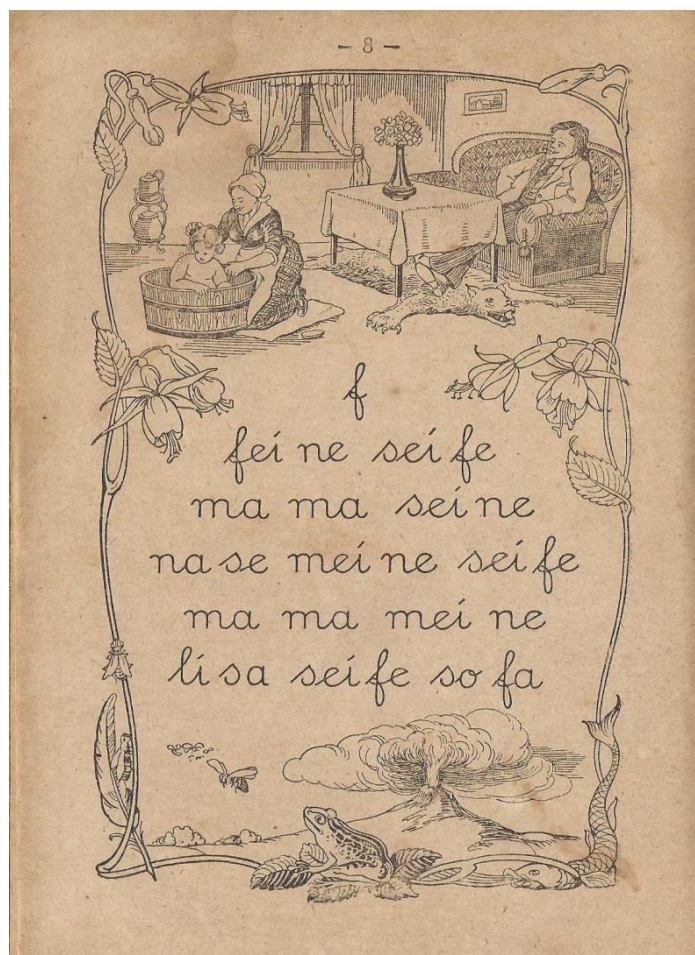 – 8 –
f
fei ne sei fe
ma ma sei ne
na se mei ne sei fe
ma ma mei ne
li sa sei fe so fa